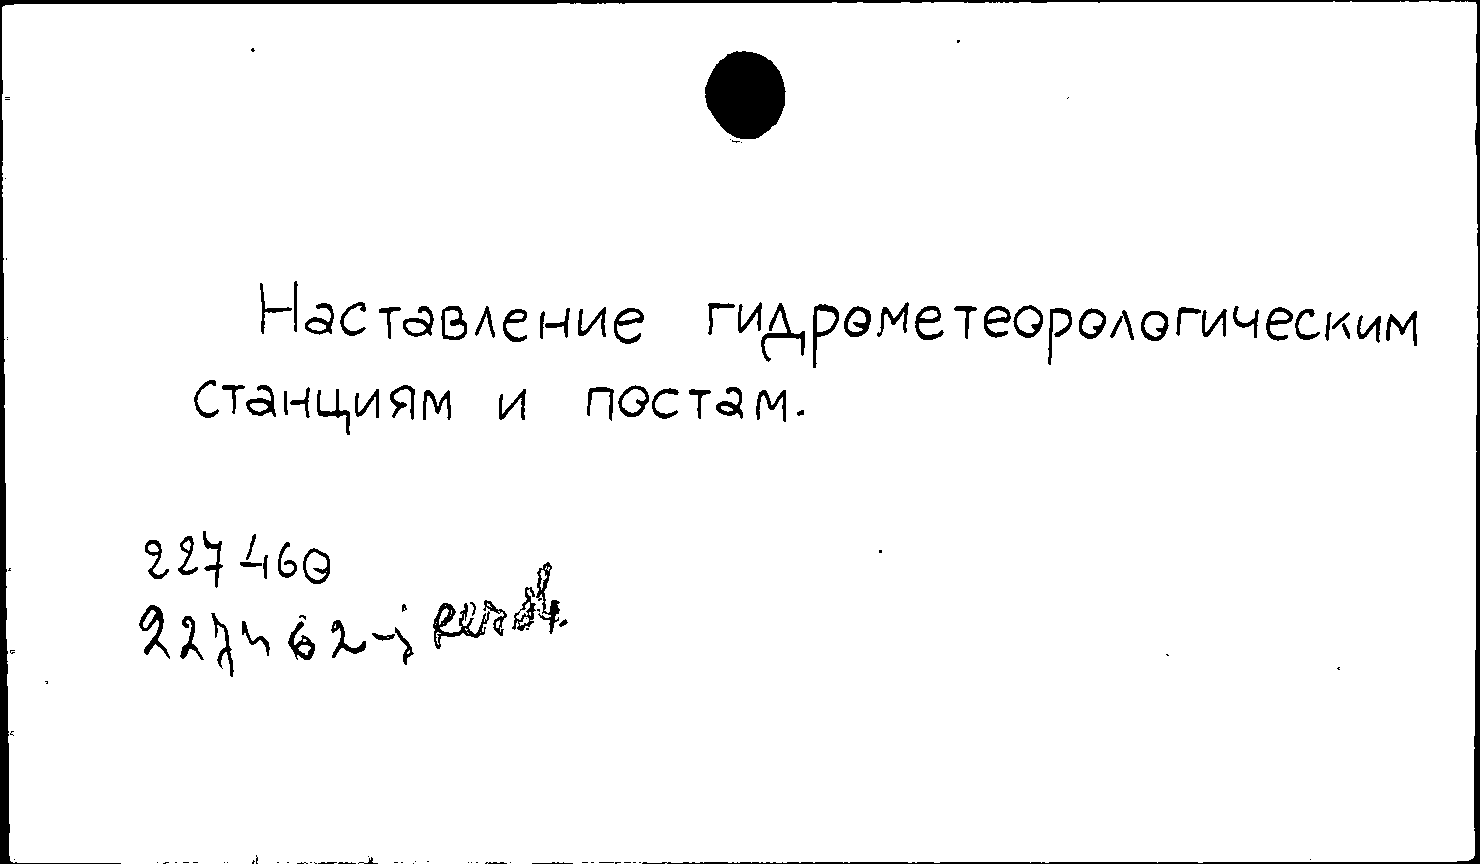 Наставление гидрометеорологическим
станциям и постам.
227460
227462-